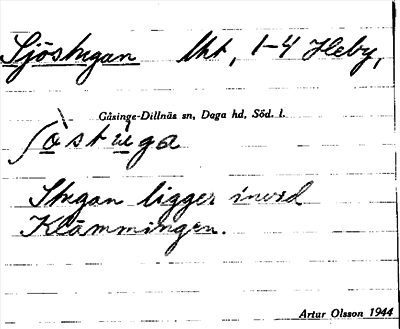 Sjöstugan lht, 1-4 Heby,
Gåsinge-Dillnäs sn, Daga hd, Söd. l.
ʃø̀stùga
Stugan ligger invid
Klämmingen.
Artur Olsson 1944